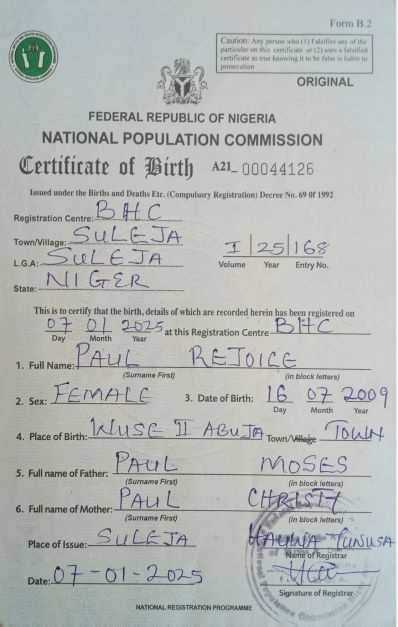 Form B.2
Caution: Any person who (1) falsifies any of the
particular on this certificate or (2) uses a falsified
certificate as true knowing it to be false is liable to
prosecution
ORIGINAL
FEDERAL REPUBLIC OF NIGERIA
NATIONAL POPULATION COMMISSION
Certificate of Birth A21-00044126
Issued under the Births and Deaths Etc. (Compulsory Registration) Decree No. 69 0f 1992
Registration Centre: BHC
Town/Village: SULEJA
L.G.A: SULEJA
I 25 168
Volume Year Entry No.
State: NIGER
This is to certify that the birth, details of which are recorded herein has been registered on
07 01 2025 at this Registration Centre BHC
Day Month Year
1. Full Name: PAUL REJOICE
(Surname First) (in block letters)
2. Sex: FEMALE 3. Date of Birth: 16 07 2009
Day Month Year
4. Place of Birth: WUSE II ABUJA Town/Village TOWN
5. Full name of Father: PAUL MOSES
(Surname First) (in block letters)
6. Full name of Mother: PAUL CHRISTY
(Surname First) (in block letters)
Place of Issue: SULEJA YUNUSA
Name of Registrar
Date: 07-01-2025
Signature of Registrar
NATIONAL REGISTRATION PROGRAMME